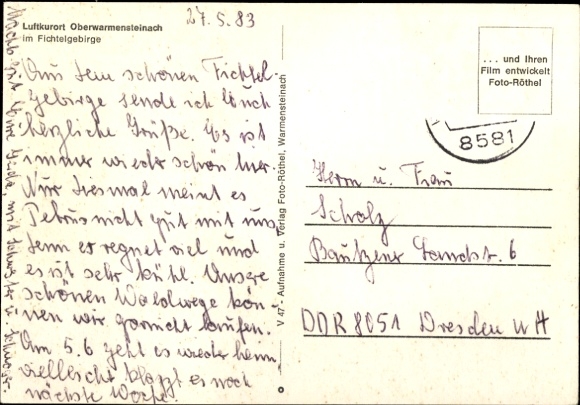 Luftkurort Oberwarmensteinach
im Fichtelgebirge
27.5.83
Aus dem schönen Fichtel-
gebirge sende ich Euch
herzliche Grüße. Es ist
immer wieder schön hier.
Nur diesmal meint es
Petrus nicht gut mit uns,
denn er regnet viel und
es ist sehr kühl. Unsere
schönen Waldwege kön-
nen wir garnicht laufen.
Am 5.6 geht es wieder heim,
vielleicht klappt es noch
nächste Woche.
Macht gut Eure mit Schwester u.
V 47 - Aufnahme u. Verlag Foto-Röthel, Warmensteinach
... und Ihren
Film entwickelt
Foto-Röthel
8581
Herrn u. Frau
Scholz
Bautzener Landstr. 6
DDR 8051 Dresden WH